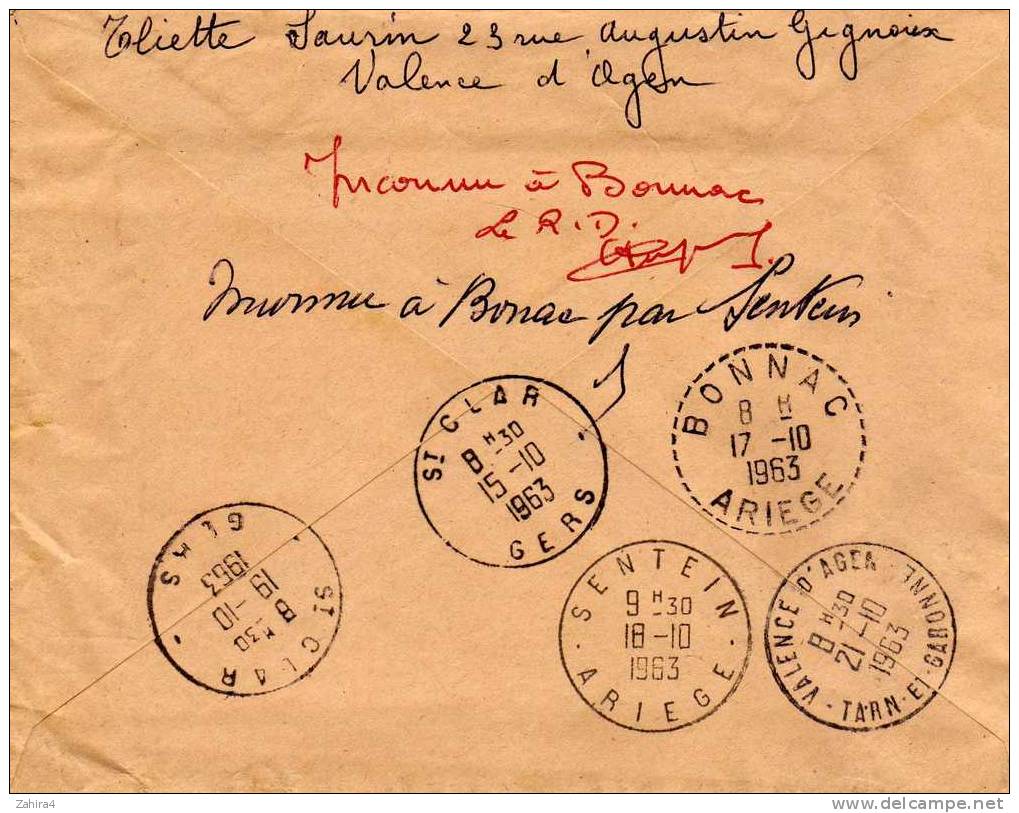 Eliette Saurin 23 rue Augustin Gignoux
Valence d'Agen
Inconnu à Bonnac
Le R.D.
Inconnu à Bonac par Sentein
ST CLAR
8 H 30
15 -10
1963
GERS
BONNAC
8 H
17 -10
1963
ARIEGE
ST CLAR
8 H 30
19 -10
1963
GERS
SENTEIN
9 H 30
18 -10
1963
ARIEGE
VALENCE D'AGEN
8 H 30
21 -10
1963
TARN-ET-GARONNE
Zahira4
www.delcampe.net